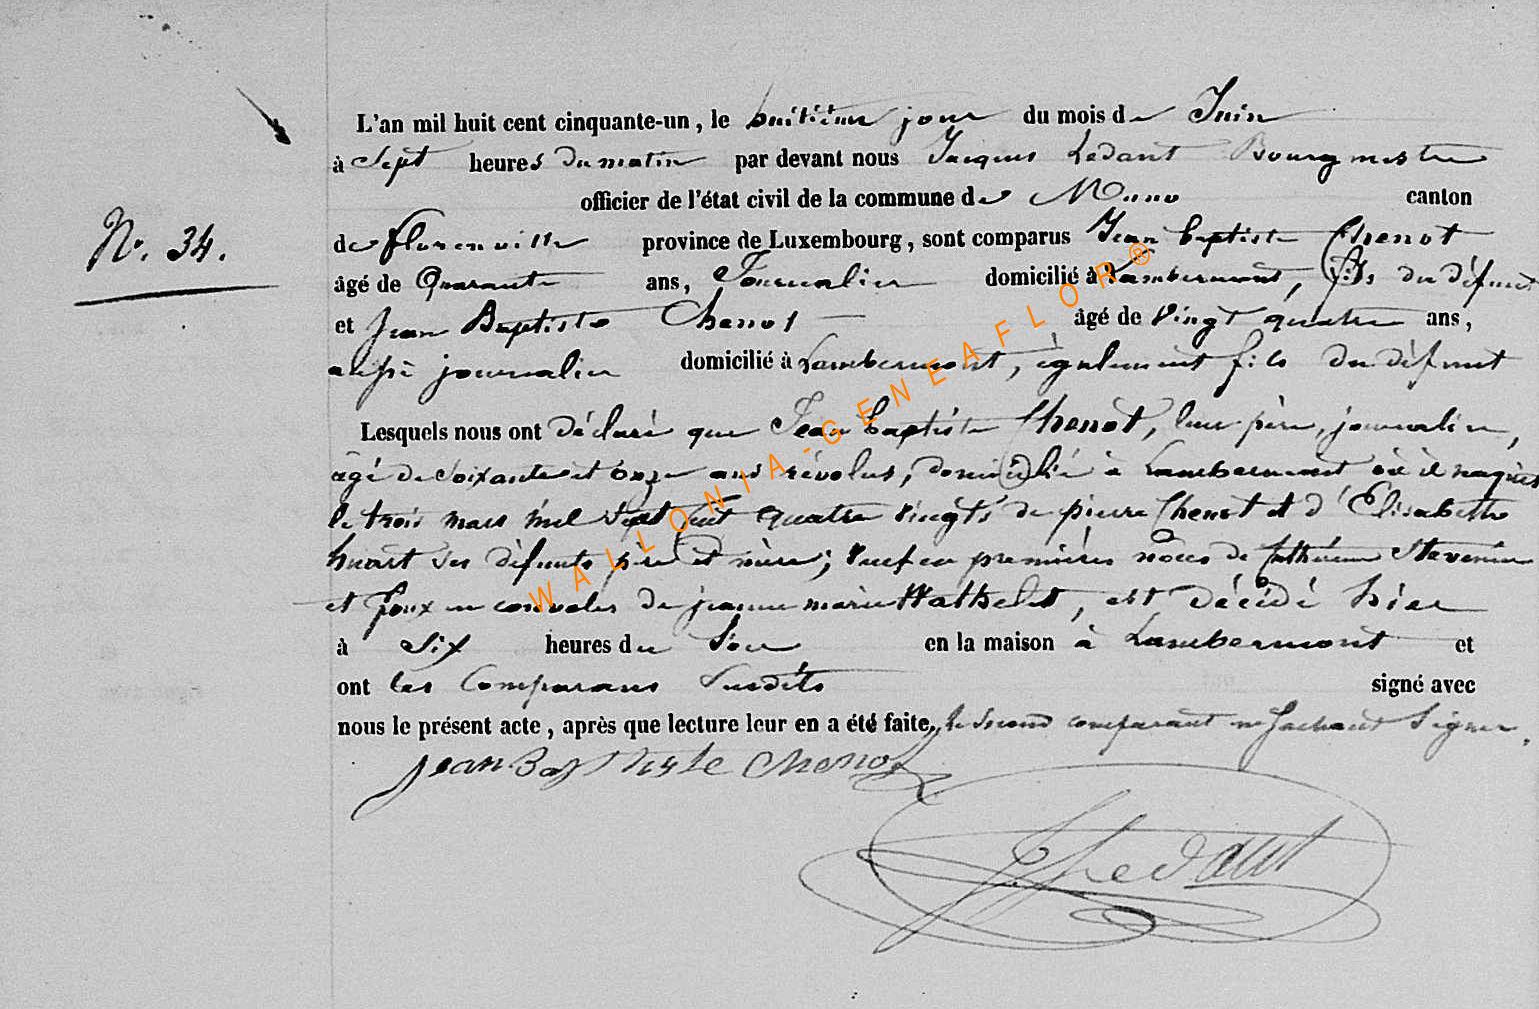 L'an mil huit cent cinquante-un, le huitième jour du mois de Juin
à Sept heures du matin par devant nous Jacques Ledant Bourgmestre
officier de l'état civil de la commune de Muno canton
N.º 34.
de florenville province de Luxembourg, sont comparus Jean baptiste Chenot
âgé de Quarante ans, Journalier domicilié à Lambermont, fils du défunt
et Jean Baptiste Chenot âgé de Vingt quatre ans,
aussi journalier domicilié à Lambermont, également fils du défunt
Lesquels nous ont déclaré que Jean baptiste Chenot, leur père, journalier,
âgé de soixante et onze ans révolus, domicilié à Lambermont où il naquit
le trois mars mil sept cent quatre vingts de pierre Chenot et d'Elisabeth
huart ses défunts père et mère; veuf en premières noces de Cathérine Stevenin
et Epoux en convoles de jeanne marie Wathelet, est décédé hier
à Six heures du Soir en la maison à Lambermont et
ont les Comparans Susdits signé avec
nous le présent acte, après que lecture leur en a été faite, le second comparant ne sachant signer.
jean Baptiste chenot
JLedant
WALLONIA-GENEAFLOR®